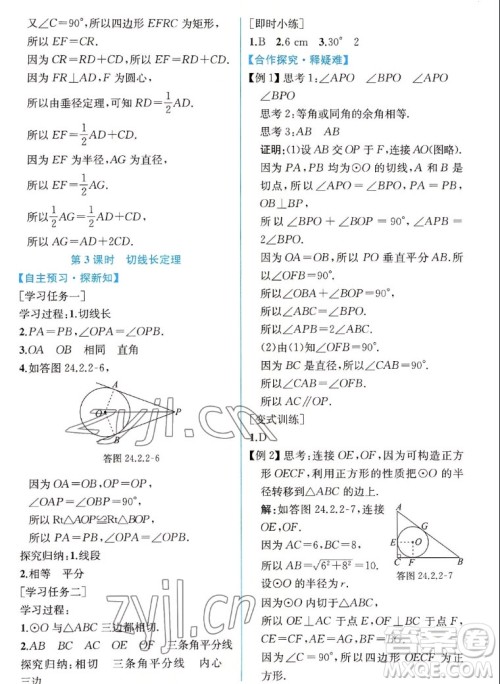 又∠C=90°,所以四边形EFRC为矩形,
所以EF=CR.
因为CR=RD+CD,所以EF=RD+CD.
因为FR⊥AD,F为圆心,
所以由垂径定理,可得RD=1/2AD,
所以EF=1/2AD+CD.
因为EF为半径,AG为直径,
所以EF=1/2AG,
所以1/2AG=1/2AD+CD,
所以AG=AD+2CD.
第3课时 切线长定理
【自主预习·探新知】
[学习任务一]
学习过程:1.切线长
2.PA=PB,∠OPA=∠OPB.
3.OA OB 相同 直角
4.如答图24.2.2-6,
A
O
P
B
答图24.2.2-6
因为OA=OB,OP=OP,
∠OAP=∠OBP=90°,
所以Rt△AOP≌Rt△BOP.
探究归纳:1.线段
2.相等 平分
[学习任务二]
学习过程:
1.⊙O与△ABC三边都相切.
2.OA,OB,OC是△ABC三条角平分线
探究归纳:相切 三条角平分线 内心
三边
[即时小练]
1.B 2.6 cm 3.30° 2
【合作探究·释疑难】
[例1]思考1:∠APO ∠BPO ∠APO
∠BPO
思考2:等角或同角的余角相等.
思考3:AB AB
证明:(1)设AB交OP于F,连接AO(图略).
因为PA,PB均为⊙O的切线,A和B是
切点,所以∠APO=∠BPO,PA=PB,
OB⊥BP,
所以∠OBF+∠FBP=90°.
因为OA=OB,所以PO垂直平分AB.
所以∠OFB=90°.
所以∠OBF+∠BOP=90°,
所以∠ABP=∠BOP.
(2)由(1)知∠OFB=90°.
因为BC是直径,所以∠CAB=90°.
所以∠CAB=∠OFB,
所以AC∥OP.
[变式训练]
1.D
[例2]思考:连接OE,OF,因此可构造正方
形OECF,利用正方形的性质把⊙O的半
径转移到△ABC的边上.
解:如答图24.2.2-7,
因为AC=6,BC=8,
所以AB=√6²+8²=10.
设⊙O的半径为r.
A
G
E
O
C
F
B
答图24.2.2-7
连接OE,OF,
所以OE⊥AC于点E,OF⊥BC于点F,
CE=CF,∠OEC=∠OFC=∠C=90°,
所以四边形OECF为正方形.
zyjl.cn
zyjl.cn
作业精灵